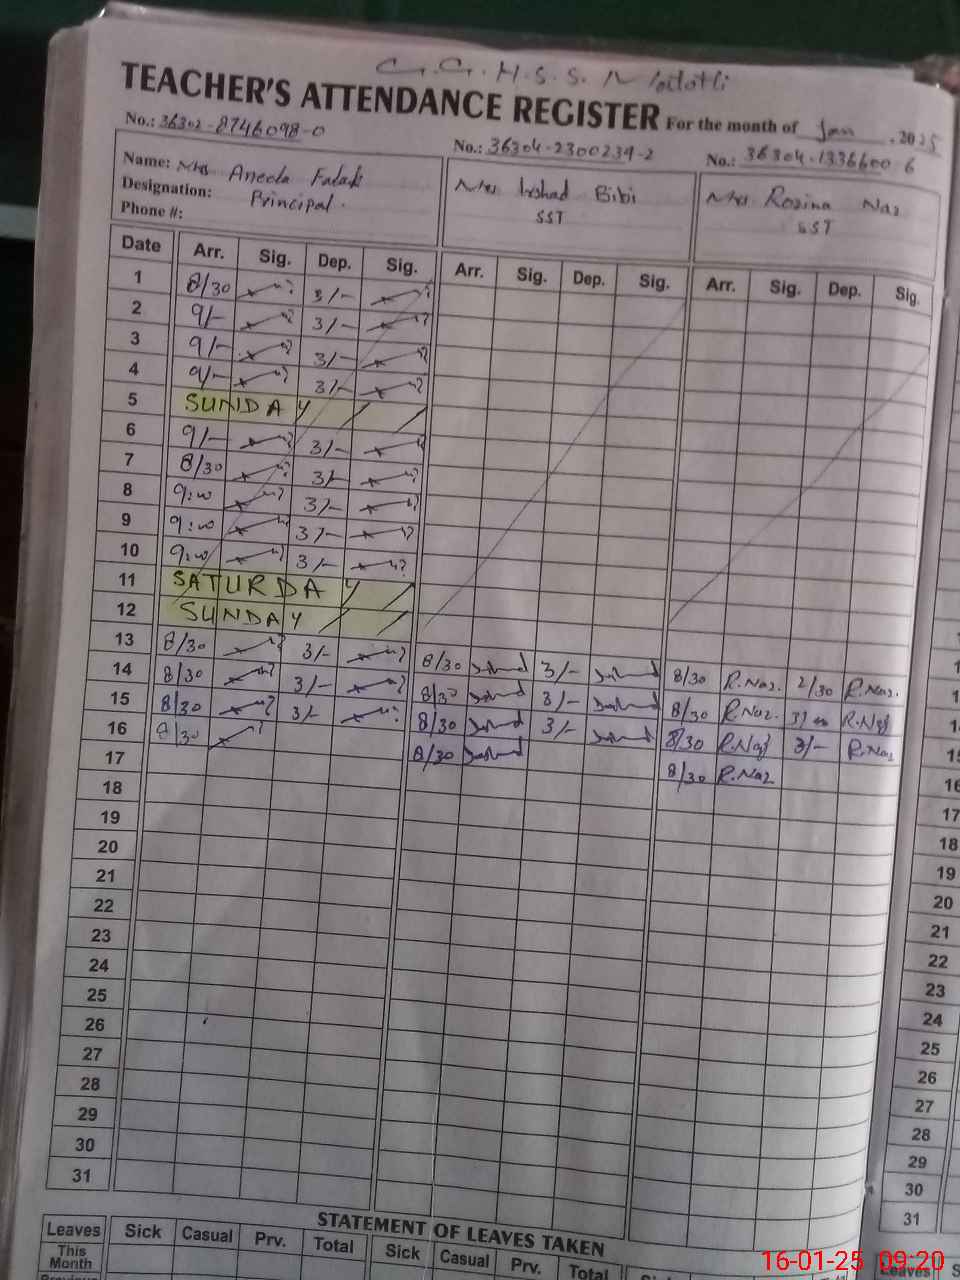 G.G.H.S.S.
TEACHER'S ATTENDANCE REGISTER For the month of Jan, 2025
No.: 36302-8746098-0 No.: 36304-2300239-2 No.: 36304-1336600 6
Name: Mrs Aneela Falak Mrs Irshad Bibi Mrs Rozina Naz
Designation: Principal. SST SST
Phone #:
Date Arr. Sig. Dep. Sig. Arr. Sig. Dep. Sig. Arr. Sig. Dep. Sig.
1 8/30 3/-
2 9/- 3/-
3 9/- 3/-
4 9/- 3/-
5 SUNDAY
6 9/- 3/-
7 8/30 3/-
8 9:00 3/-
9 9:00 3/-
10 9:00 3/-
11 SATURDAY
12 SUNDAY
13 8/30 3/- 8/30 3/- 8/30 R.Naz. 2/30 R.Naz.
14 8/30 3/- 8/30 3/- 8/30 R.Naz. R.Naz
15 8/30 3/- 8/30 3/- 8/30 R.Naz 3/- R.Naz
16 8/30 8/30 8/30 R.Naz
17
18
19
20
21
22
23
24
25
26
27
28
29
30
31
STATEMENT OF LEAVES TAKEN
Leaves Sick Casual Prv. Total Sick Casual Prv. Total Sick
This Month
16-01-25 09:20